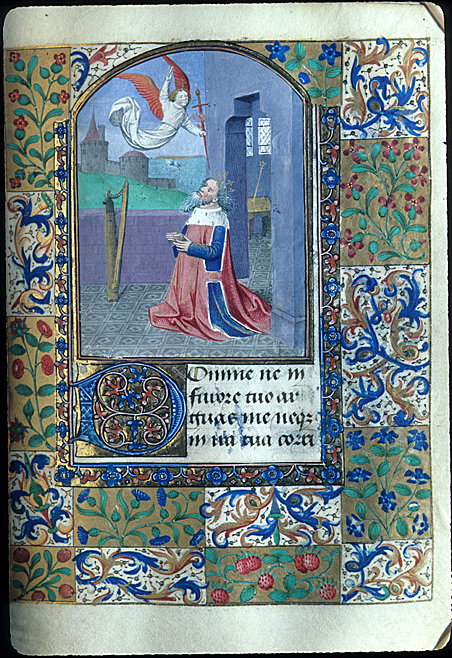 DOmine ne in
furore tuo ar
guas me neqꝫ
in ira tua corri